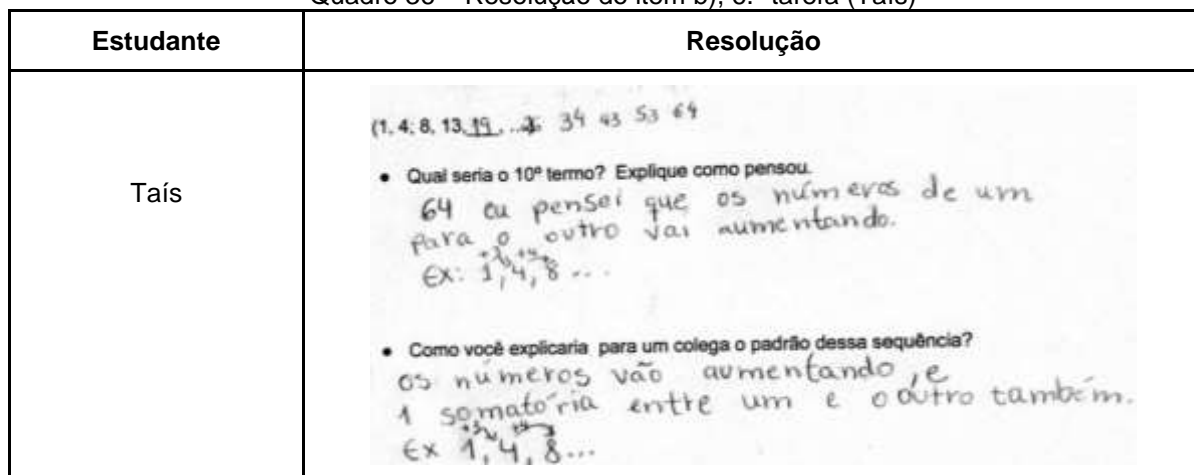 Estudante
Resolução
Taís
(1, 4; 8, 13, 19, ... 34 43 53 64
• Qual seria o 10º termo? Explique como pensou.
64 eu pensei que os números de um
para o outro vai aumentando.
+3 +4
Ex: 1, 4, 8 ...
• Como você explicaria para um colega o padrão dessa sequência?
os números vão aumentando, e
1 somatória entre um e o outro também.
+3 +4
Ex 1, 4, 8...